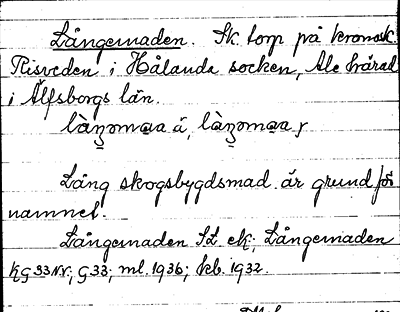 Långemaden. Sk. torp på kronosk.
Risveden i Hålanda socken, Ale härad
i Älfsborgs län.
làŋomaa á, làŋomaa,
Lång skogsbygdsmad är grund för
namnet.
Långemaden St. ek; Långemaden
KG 33 NV; G 33; ml. 1936; kb. 1932.